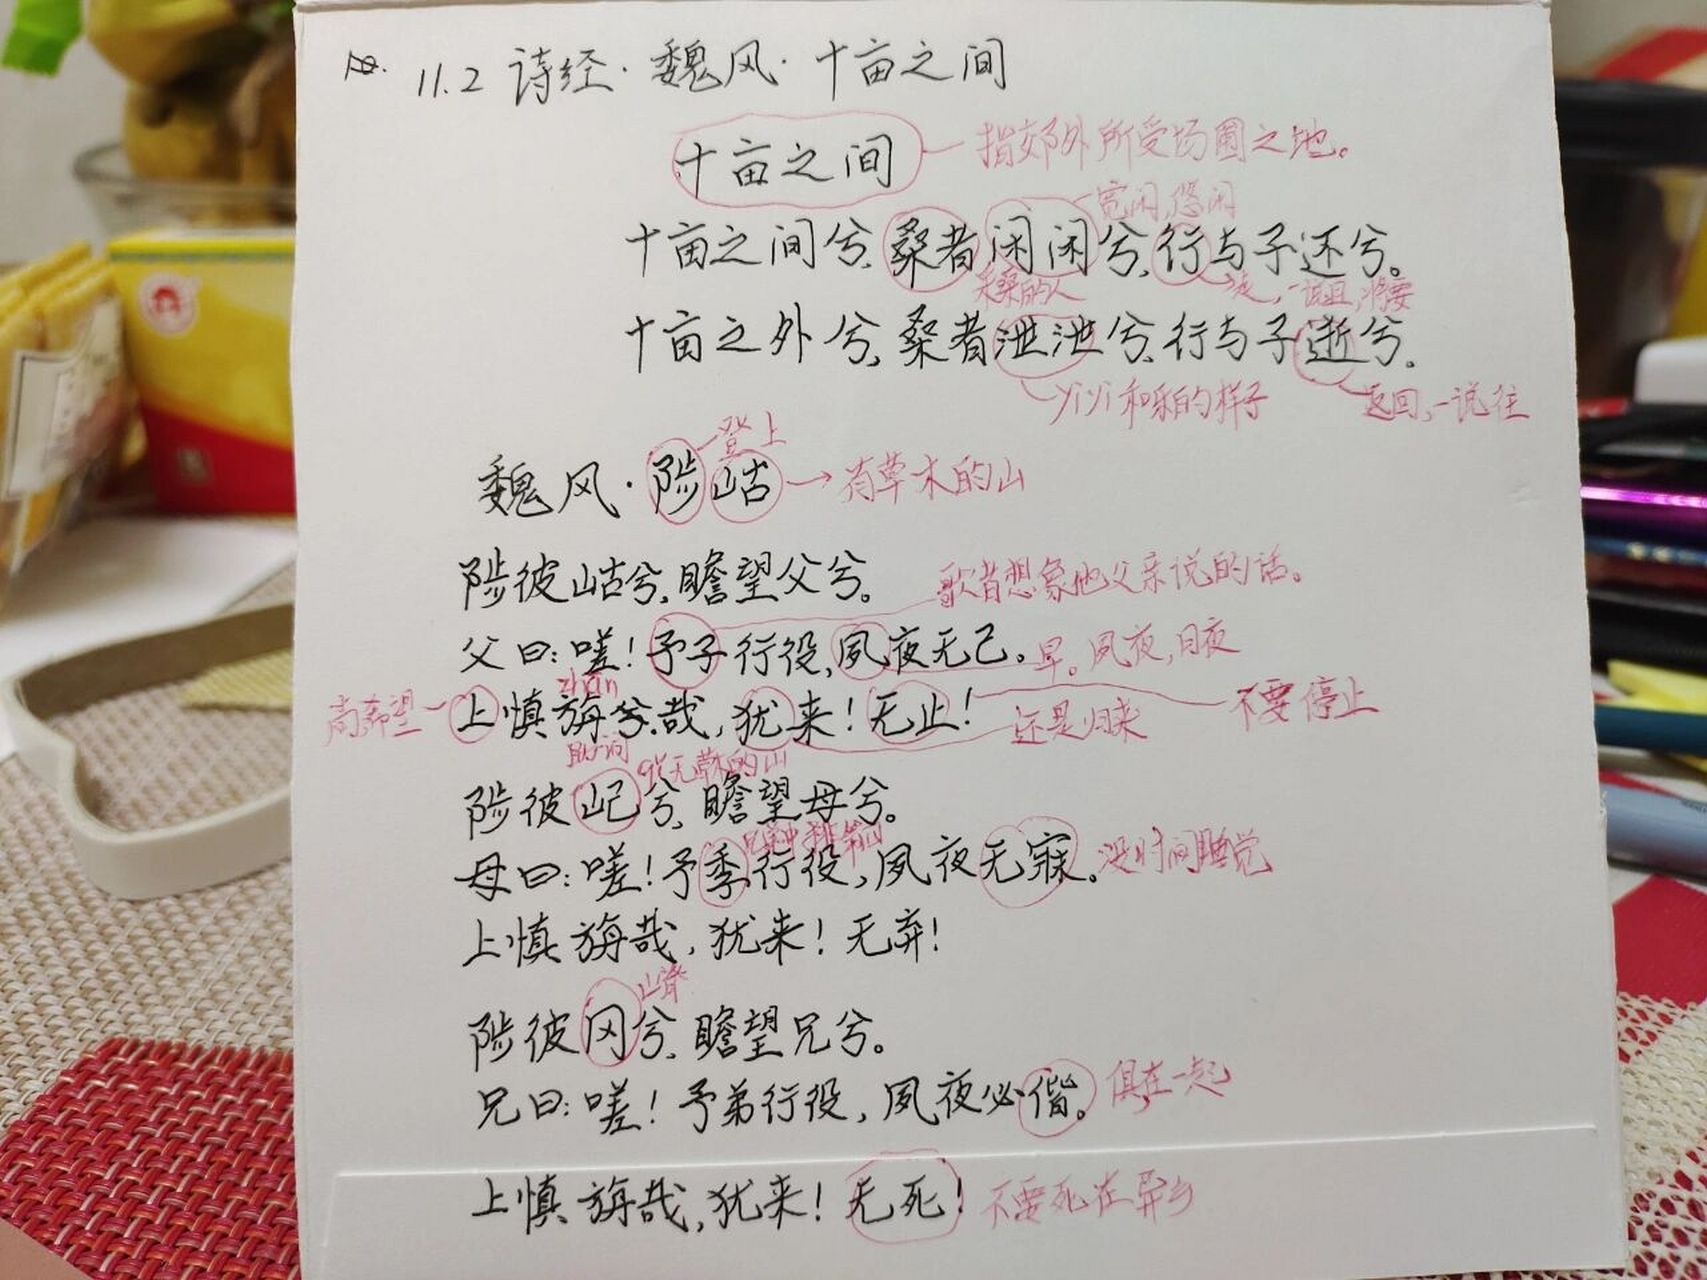 11.2 诗经·魏风·十亩之间
十亩之间 指郊外所受场圃之地。
宽闲,悠闲
十亩之间兮,桑者闲闲兮,行与子还兮。
采桑的人 走,一说且,将要
十亩之外兮,桑者泄泄兮,行与子逝兮。
yiyi 和乐的样子 返回,一说往
登上
魏风·陟岵 有草木的山
陟彼岵兮,瞻望父兮。 歌者想象他父亲说的话。
父曰:嗟!予子行役,夙夜无已。 早。夙夜,日夜
zhān
尚希望 上慎旃兮哉,犹来!无止! 还是归来 不要停止
助词 qǐ无草木的山
陟彼屺兮,瞻望母兮。
兄弟中排第四
母曰:嗟!予季行役,夙夜无寐。没时间睡觉
上慎旃哉,犹来!无弃!
山脊
陟彼冈兮,瞻望兄兮。
兄曰:嗟!予弟行役,夙夜必偕。 俱在一起
上慎旃哉,犹来!无死! 不要死在异乡